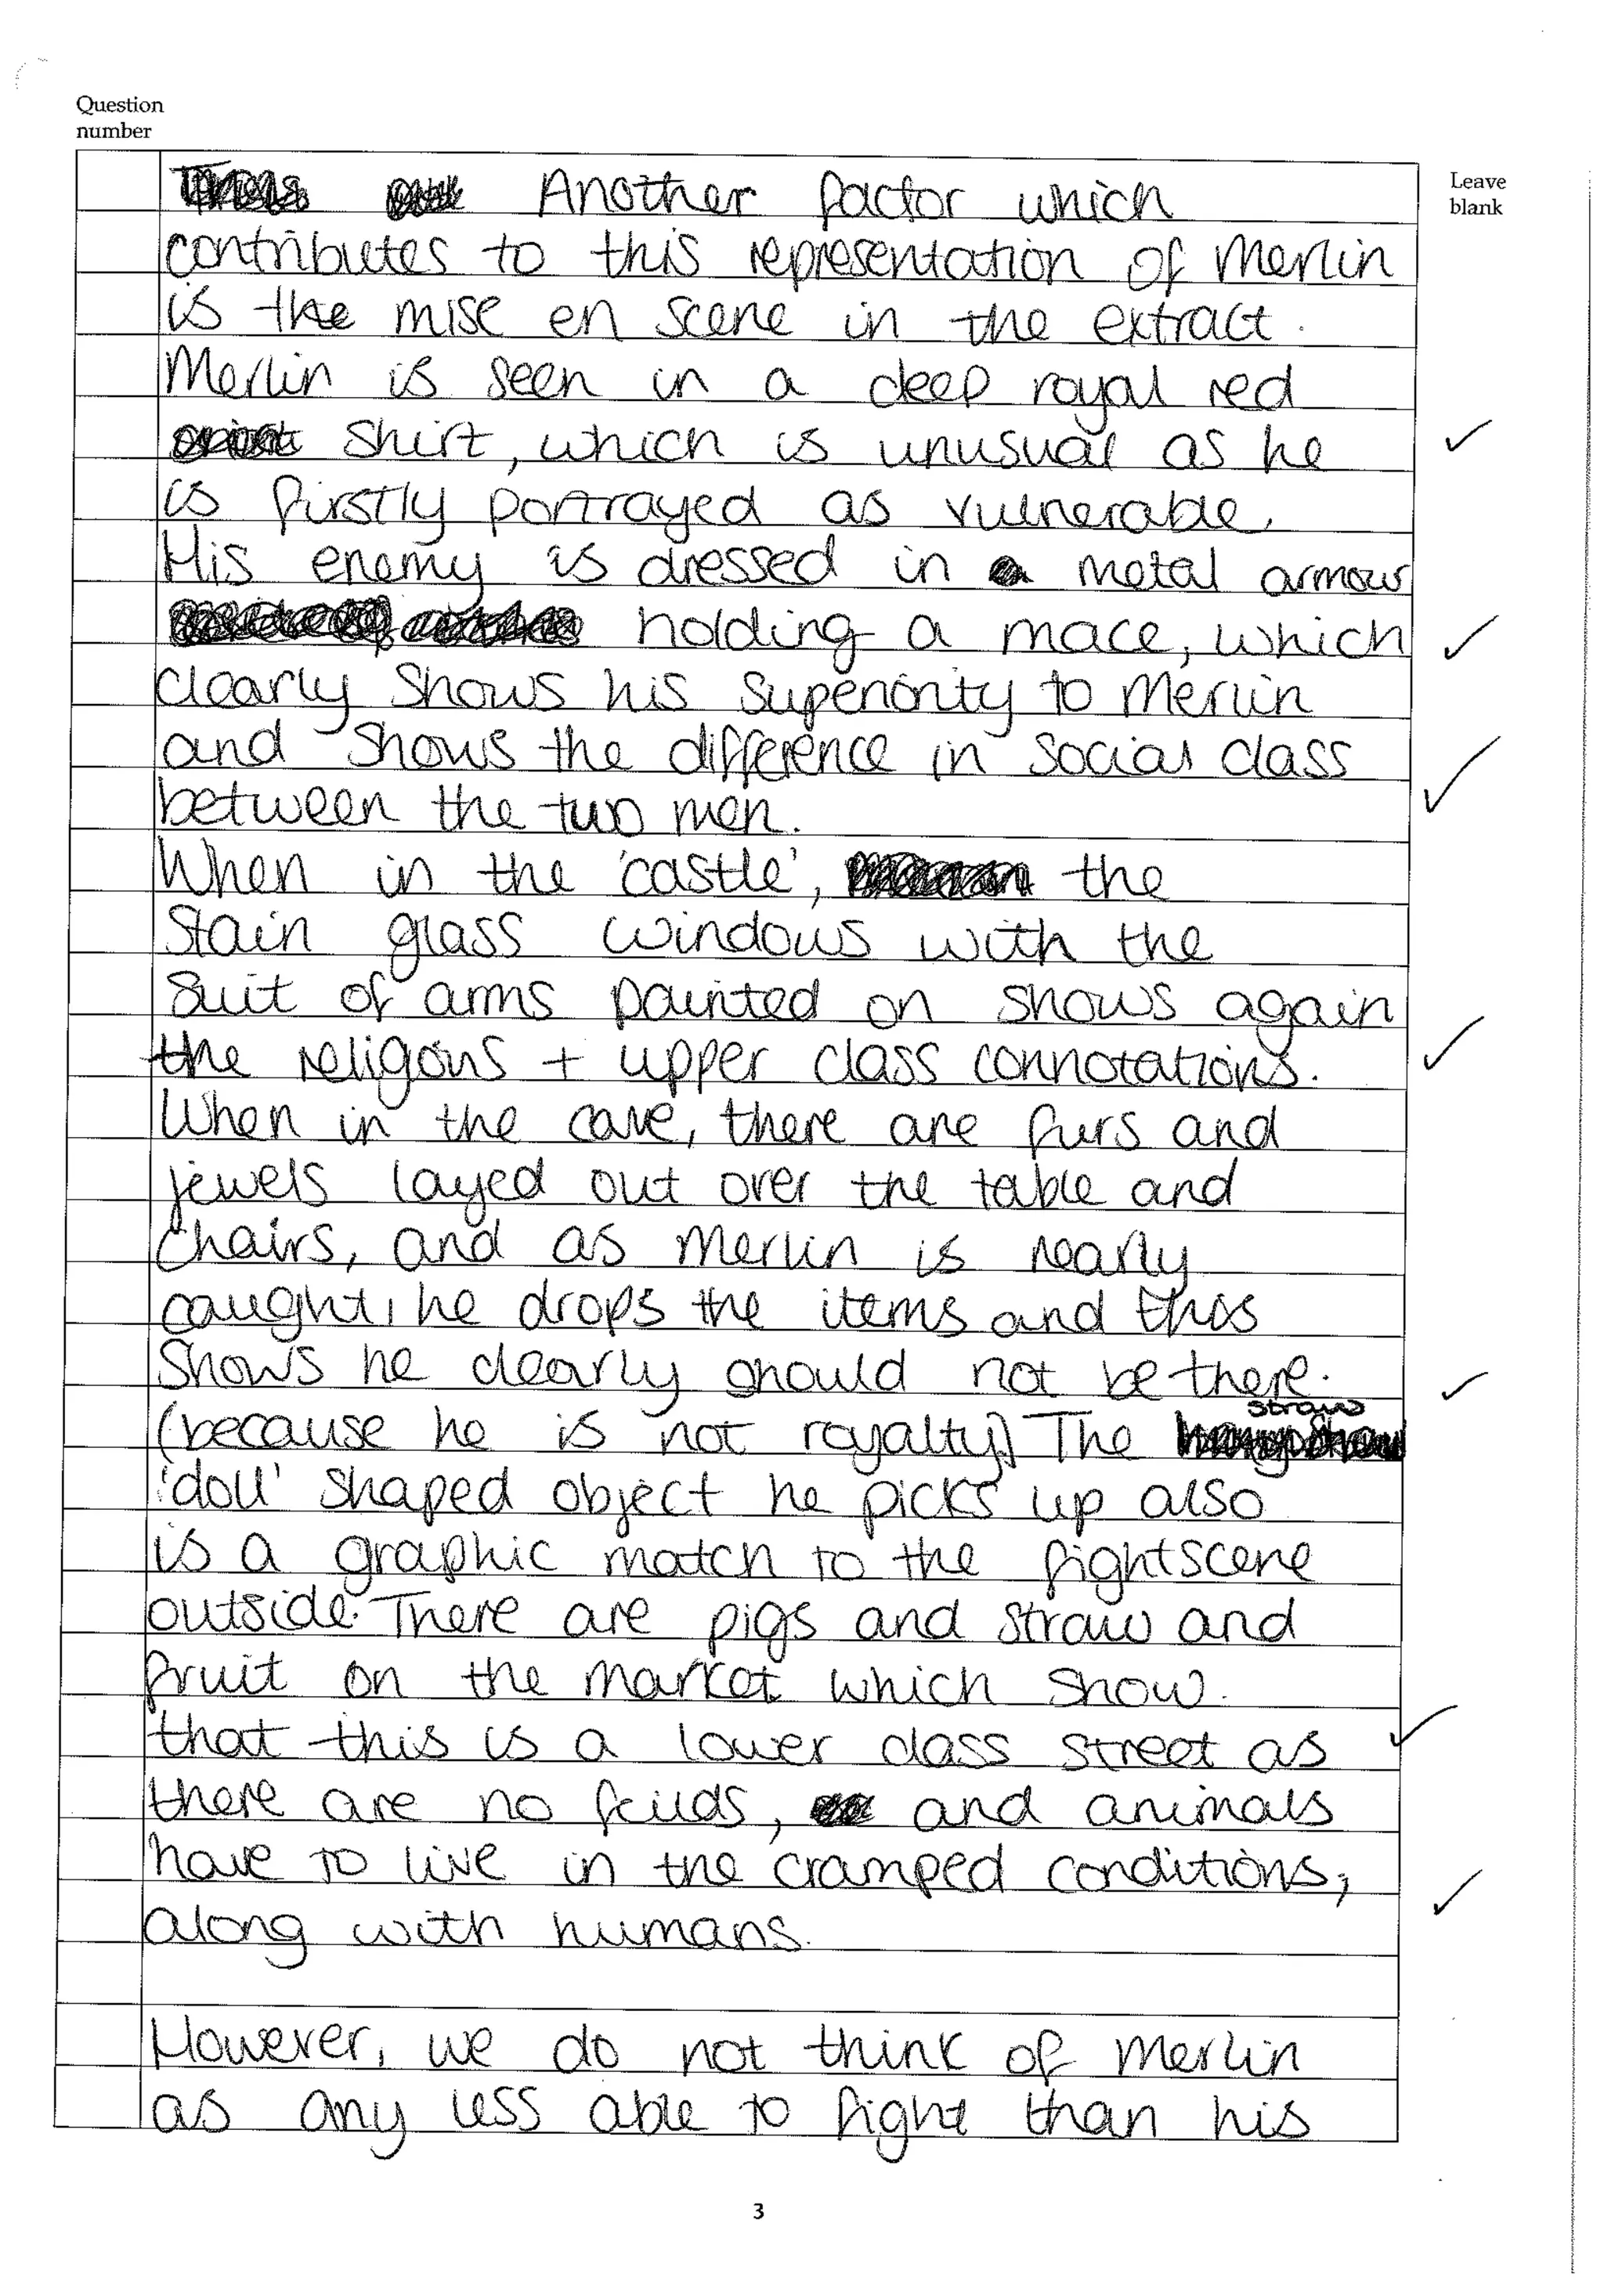 Question
number
Leave
blank
Another factor which
contributes to this representation of Merlin
is the mise en scene in the extract.
Merlin is seen in a deep royal red
shirt, which is unusual as he
is firstly portrayed as vulnerable.
His enemy is dressed in metal armour
holding a mace, which
clearly shows his superiority to Merlin
and shows the difference in social class
between the two men.
When in the 'castle', the
stain glass windows with the
suit of arms painted on shows again
the religous + upper class connotations.
When in the cave, there are furs and
jewels layed out over the table and
chairs, and as Merlin is nearly
caught, he drops the items and this
shows he clearly should not be there.
(because he is not royalty) The straw
'doll' shaped object he picks up also
is a graphic match to the fightscene
outside. There are pigs and straw and
fruit on the market which show
that this is a lower class street as
there are no feilds, and animals
have to live in the cramped conditions,
along with humans.
However, we do not think of Merlin
as any less able to fight than his
3